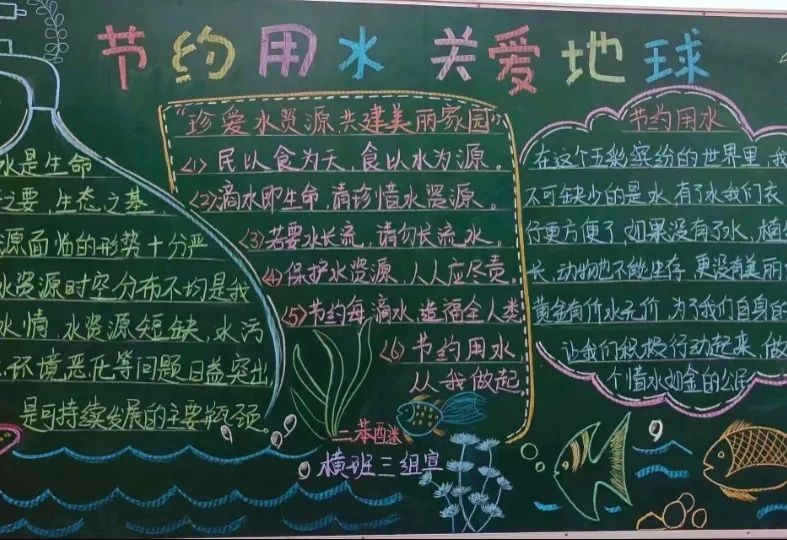 节约用水 关爱地球
水是生命
之要,生态之基,
源面临的形势十分严
水资源时空分布不均是我
水情,水资源短缺,水污
环境恶化等问题日益突出,
是可持续发展的主要瓶颈。
"珍爱水资源共建美丽家园"
<1>民以食为天,食以水为源。
<2>滴水即生命,请珍惜水资源。
<3>若要水长流,请勿长流水。
<4>保护水资源,人人应尽责。
<5>节约每滴水,造福全人类
<6>节约用水,
从我做起。
节约用水
在这个五彩缤纷的世界里,我
不可缺少的是水,有了水我们衣
行更方便了,如果没有了水,植
长,动物也不能生存,更没有美丽
黄金有价水无价,为了我们自身的
让我们积极行动起来,做
个惜水如金的公民
二苯醚
横班三组宣